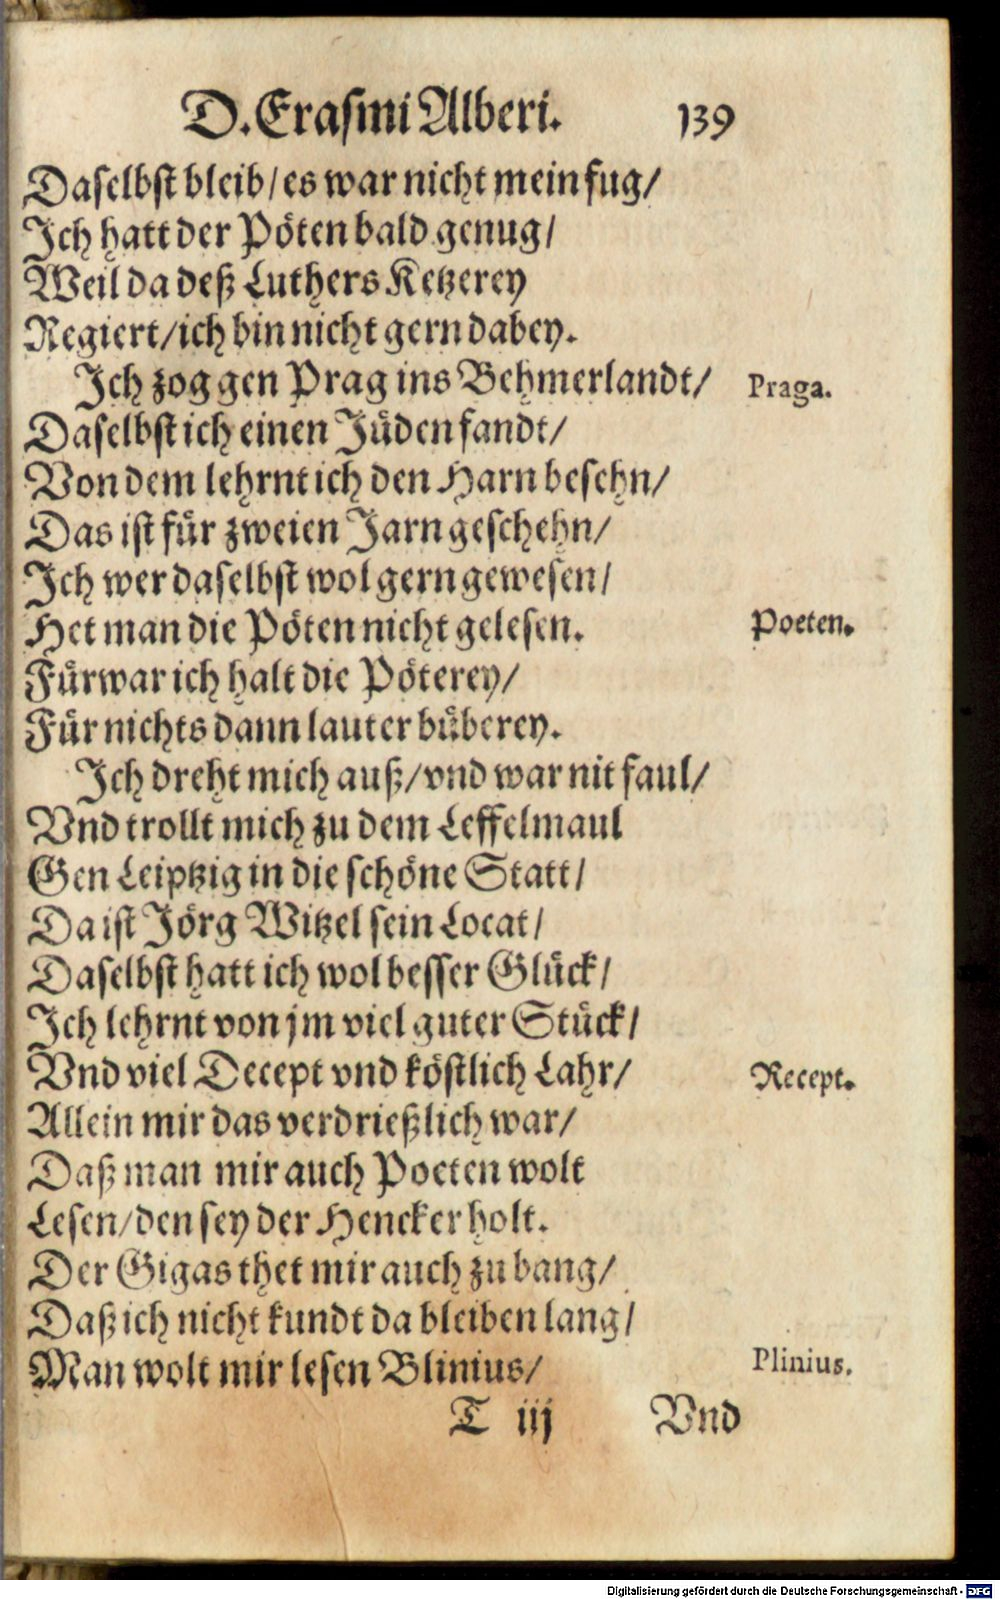 D. Erasmi Alberi. 139
Daselbst bleib/ es war nicht mein fug/
Ich hatt der Pöten bald genug/
Weil da deß Luthers Ketzerey
Regiert/ ich bin nicht gern dabey.
Ich zog gen Prag ins Behmerlandt/ Praga.
Daselbst ich einen Jüden fandt/
Von dem lehrnt ich den Harn besehn/
Das ist für zweien Jarn geschehn/
Ich wer daselbst wol gern gewesen/
Het man die Pöten nicht gelesen. Poeten.
Fürwar ich halt die Pöterey/
Für nichts dann lauter büberey.
Ich dreht mich auß/ vnd war nit faul/
Vnd trollt mich zu dem Leffelmaul
Gen Leiptzig in die schöne Statt/
Da ist Jörg Witzel sein Locat/
Daselbst hatt ich wol besser Glück/
Ich lehrnt von jm viel guter Stück/
Vnd viel Decept vnd köstlich Lahr/ Recept.
Allein mir das verdrießlich war/
Daß man mir auch Poeten wolt
Lesen/ den sey der Hencker holt.
Der Gigas thet mir auch zu bang/
Daß ich nicht kundt da bleiben lang/
Man wolt mir lesen Blinius/ Plinius.
T iij Vnd
Digitalisierung gefördert durch die Deutsche Forschungsgemeinschaft - DFG